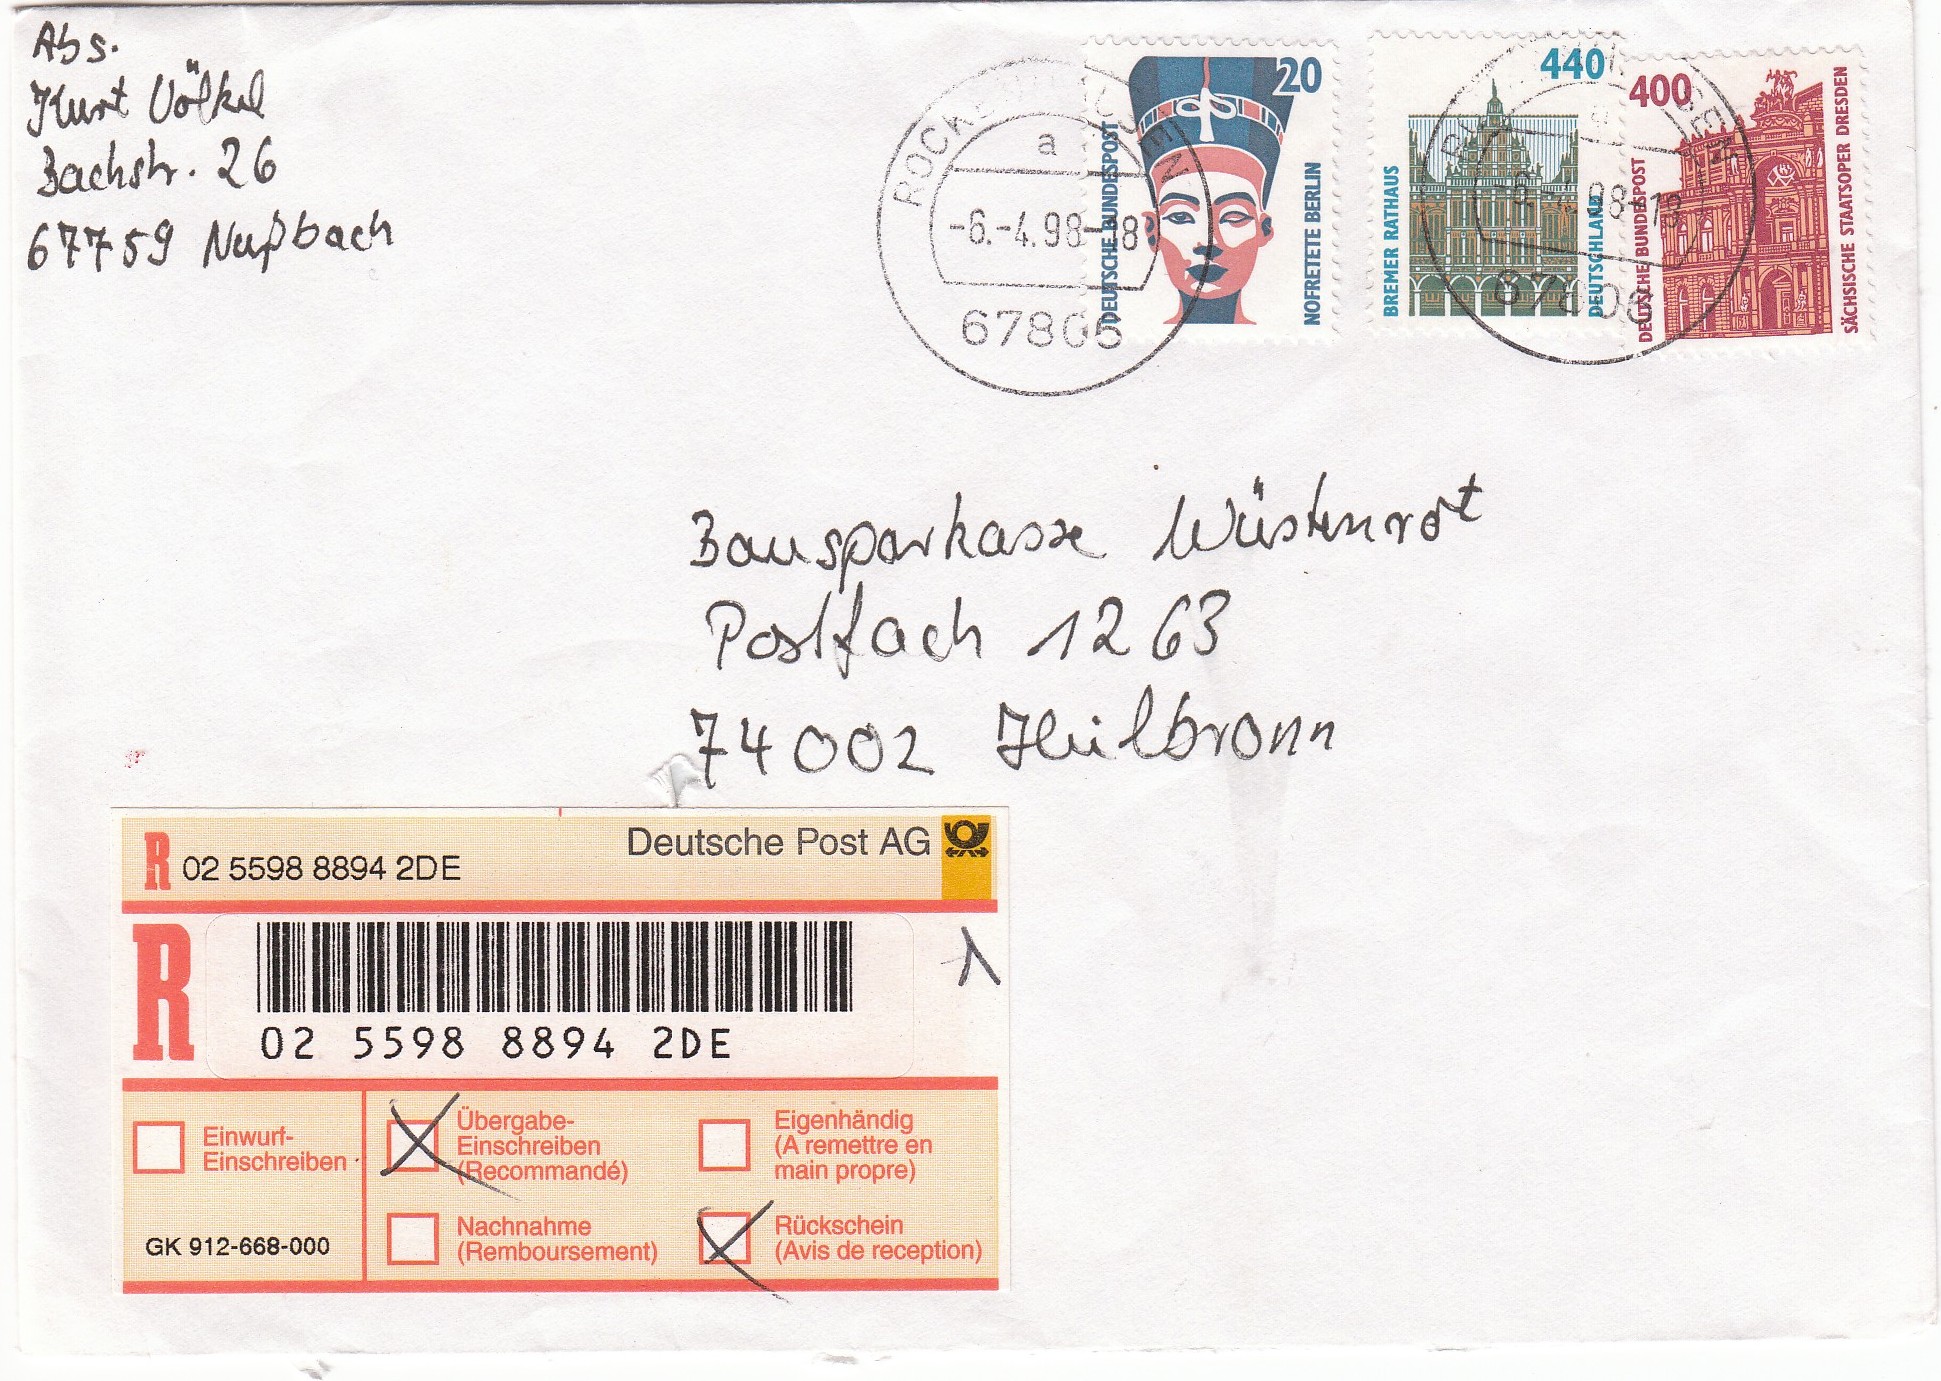 Abs.
Kurt Völkel
Bachstr. 26
67759 Nußbach
ROCKENHAUSEN
a
-6.-4.98-18
67806
20
DEUTSCHE BUNDESPOST
NOFRETETE BERLIN
440
BREMER RATHAUS
DEUTSCHLAND
400
DEUTSCHE BUNDESPOST
SÄCHSISCHE STAATSOPER DRESDEN
67806
Bausparkasse Wüstenrot
Postfach 1263
74002 Heilbronn
R 02 5598 8894 2DE
Deutsche Post AG
R
02 5598 8894 2DE
Einwurf-
Einschreiben
Übergabe-
Einschreiben
(Recommandé)
Eigenhändig
(A remettre en
main propre)
GK 912-668-000
Nachnahme
(Remboursement)
Rückschein
(Avis de reception)